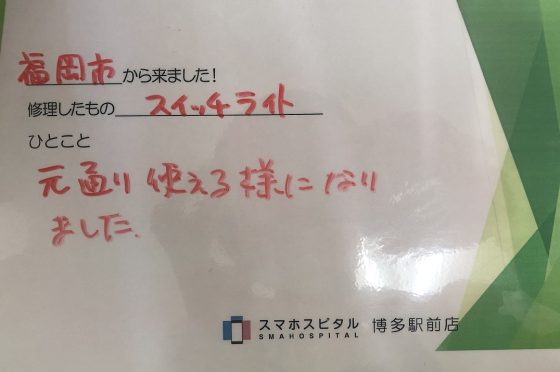 福岡市から来ました!
修理したもの スイッチライト
ひとこと
元通り使える様になり
ました.
スマホスピタル 博多駅前店
SMAHOSPITAL